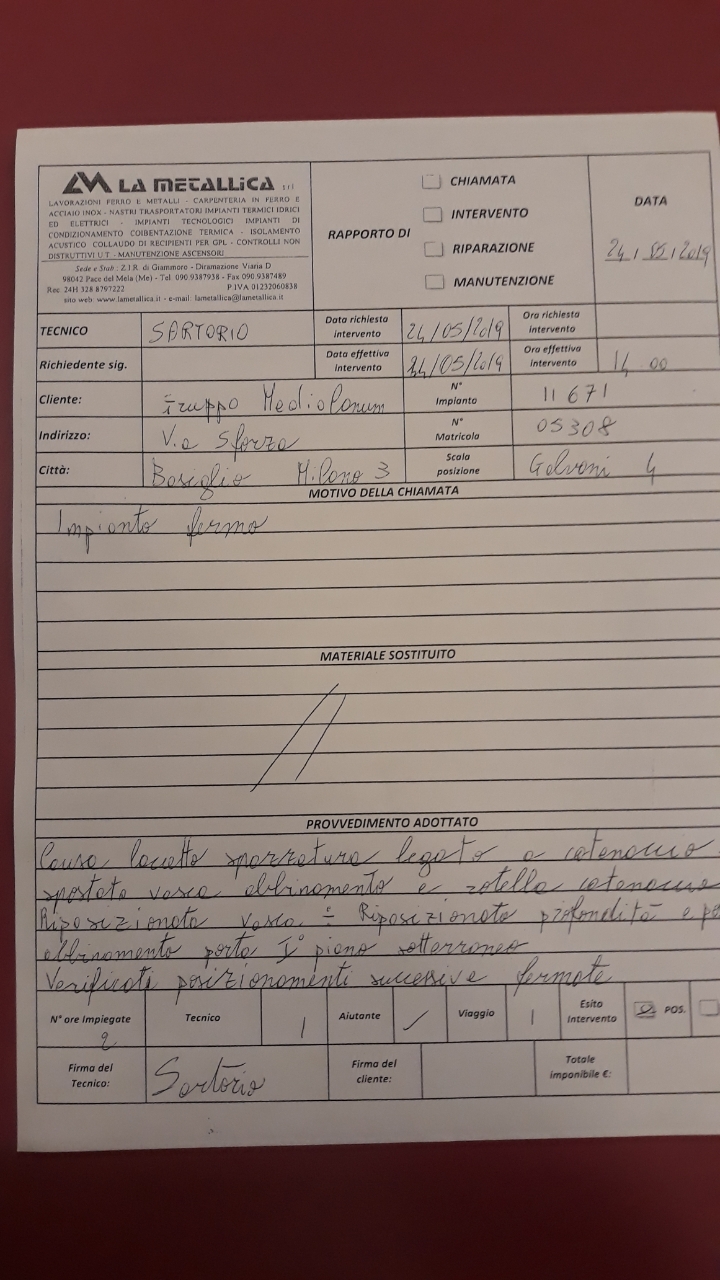 LA METALLICA s.r.l
LAVORAZIONI FERRO E METALLI - CARPENTERIA IN FERRO E
ACCIAIO INOX - NASTRI TRASPORTATORI IMPIANTI TERMICI IDRICI
ED ELETTRICI - IMPIANTI TECNOLOGICI IMPIANTI DI
CONDIZIONAMENTO COIBENTAZIONE TERMICA - ISOLAMENTO
ACUSTICO COLLAUDO DI RECIPIENTI PER GPL - CONTROLLI NON
DISTRUTTIVI U.T - MANUTENZIONE ASCENSORI
Sede e Stab.: Z.I.R. di Giammoro - Diramazione Viaria D
98042 Pace del Mela (Me) - Tel. 090 9387938 - Fax 090 9387489
Rec. 24H 328 8797222 P.IVA 01232060838
sito web: www.lametallica.it - e-mail: lametallica@lametallica.it
RAPPORTO DI
CHIAMATA
INTERVENTO
RIPARAZIONE
MANUTENZIONE
DATA
24/05/2019
TECNICO SARTORIO Data richiesta intervento 24/05/2019 Ora richiesta intervento
Richiedente sig. Data effettiva intervento 24/05/2019 Ora effettiva intervento 14 00
Cliente: Gruppo Mediolanum N° Impianto 11671
Indirizzo: Via Sforza N° Matricola 05308
Città: Basiglio Milano 3 Scala posizione Galvani 4
MOTIVO DELLA CHIAMATA
Impianto fermo
MATERIALE SOSTITUITO
PROVVEDIMENTO ADOTTATO
Causa sparzatura legato a catenaccio
spostato vasca abbinamento e rotella catenaccio
Riposizionata vasca ÷ Riposizionato profondità e
abbinamento porta I° piano sotterraneo
Verificati posizionamenti successive fermate
N° ore Impiegate 2 Tecnico 1 Aiutante / Viaggio 1 Esito Intervento POS.
Firma del Tecnico: Sartorio Firma del cliente: Totale imponibile €: